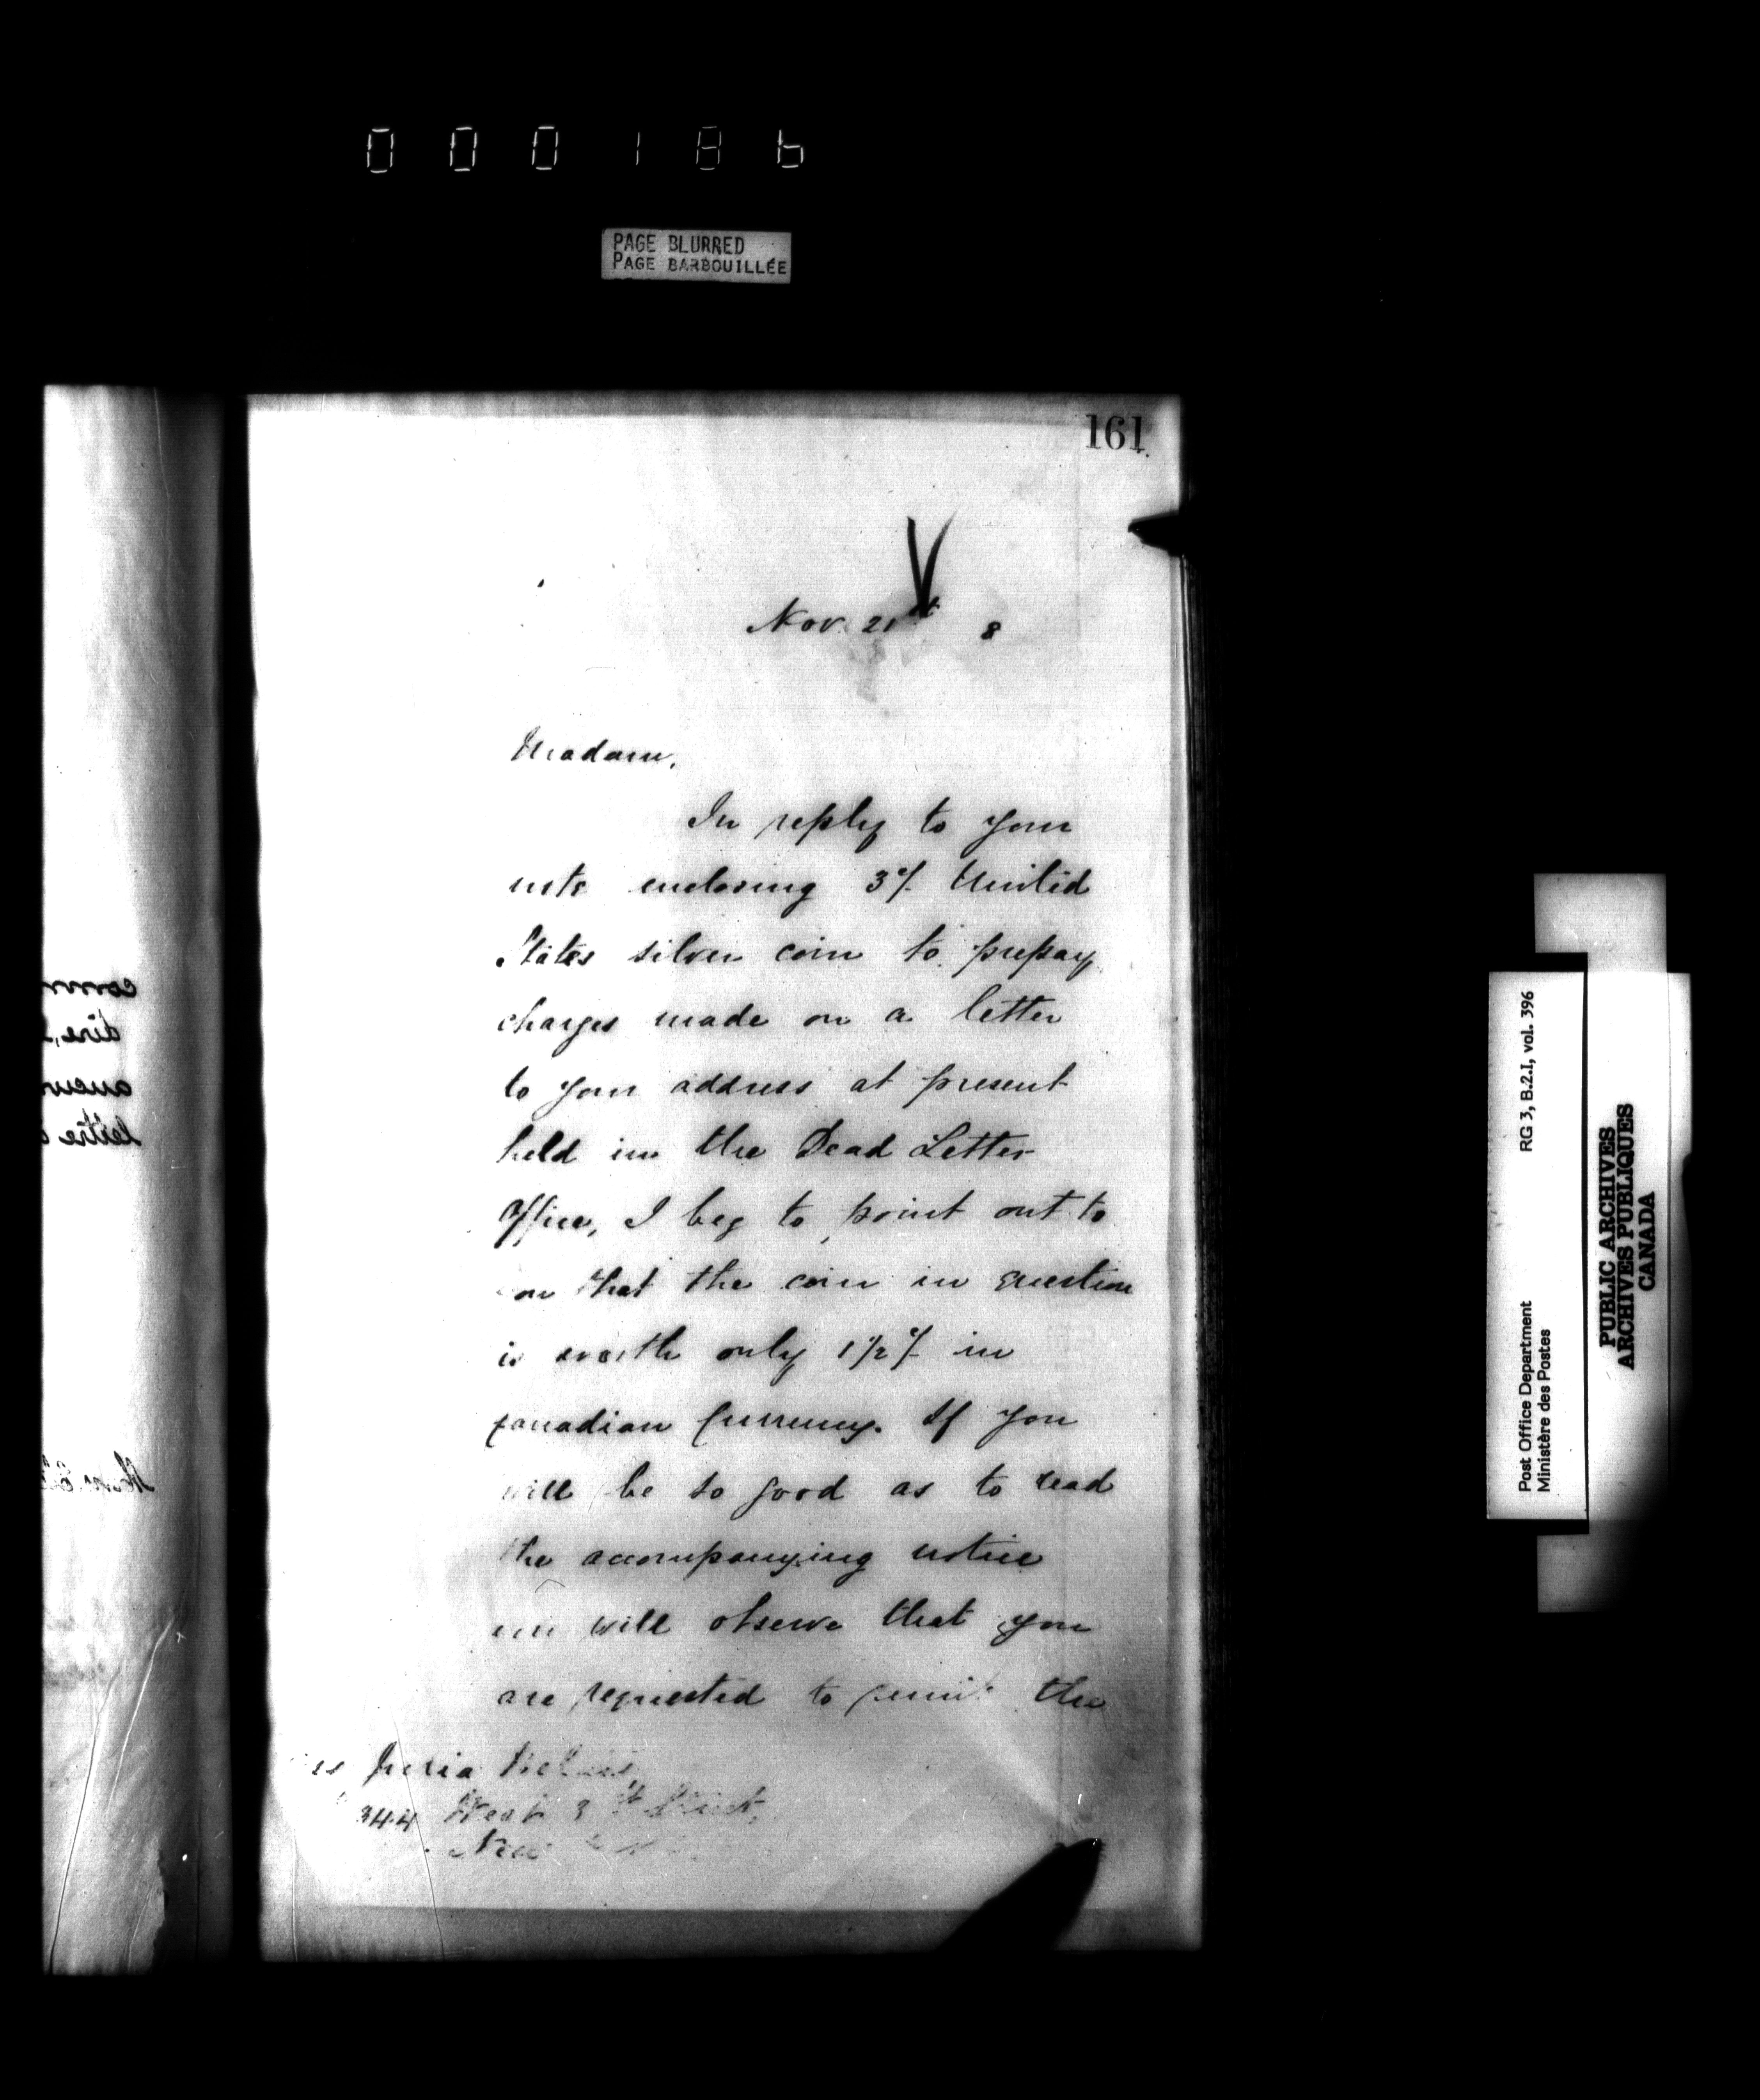 000186
PAGE BLURRED
PAGE BARBOUILLÉE
161
Nov. 21st 8
Madam,
In reply to your
note enclosing 3¢ United
States silver coin to prepay
charges made on a letter
to your address at present
held in the Dead Letter
Office, I beg to point out to
that the coin in question
is worth only 1 1/2 ¢ in
Canadian Currency. If you
will be so good as to read
the accompanying notice
will observe that you
are requested to remit the
344 West
New
Post Office Department
Ministère des Postes
RG 3, B.2.I, vol. 396
PUBLIC ARCHIVES
ARCHIVES PUBLIQUES
CANADA